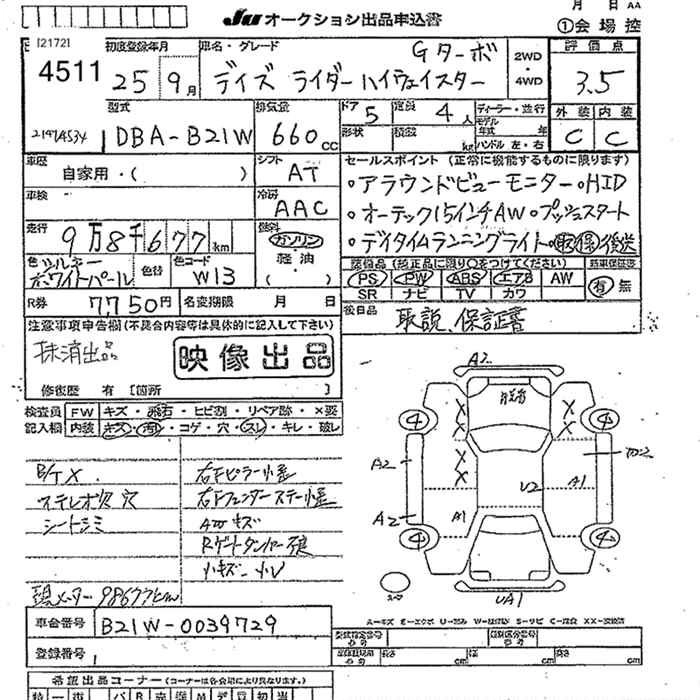 Ju オークション出品申込書
月 日 AA
①会場控
[2172]
4511
初度登録年月
25 9月
車名・グレード
Gターボ
デイズ ライダーハイウェイスター
2WD
・
4WD
評価点
3.5
外装 内装
C C
型式
DBA-B21W
排気量
660cc
ドア 5
定員 4人
形状
積載 kg
ディーラー・並行
モデル年式 年式
ハンドル 左・右
車歴
自家用・( )
シフト
AT
車検
冷房
AAC
走行
9万8千677km
燃料
ガソリン
・
軽油
( )
セールスポイント (正常に機能するものに限ります)
・アラウンドビューモニター・HID
・オーテック15インチAW・プッシュスタート
・デイタイムランニングライト・取保後送
色 ホワイトパール
色替
色コード
W13
装備品(純正品に限り○をつけてください)
PS PW ABS エアB AW
SR ナビ TV カワ
新車保証書
有 無
R券 7,750円
名変期限 月 日
後日品
取説、保証書
注意事項申告欄(不具合内容等は具体的に記入して下さい)
抹消出品
映像出品
修復歴 有 [箇所 ]
検査員 FW キズ・飛石・ヒビ割・リペア跡・×要
記入欄 内装 キズ・汚・コゲ・穴・スレ・キレ・破レ
B/T X
ステレオ欠 穴
シートシミ
右Fピラー小歪
右Fフェンダーステー小歪
AWキズ
小キズ 小凹
現メーター 98677km
A2
X X
X X
X
X
4 4
A2
A2
A1
U2
A1
4 4
UA1
A=キズ E=エクボ U=凹み W=波状凹 S=サビ C=腐食 XX=交換済
車台番号
B21W-0039729
登録番号
型式指定番号
類別区分番号
長さ cm 幅 cm 高さ cm
希望出品コーナー(コーナーは各会場により異なります。)